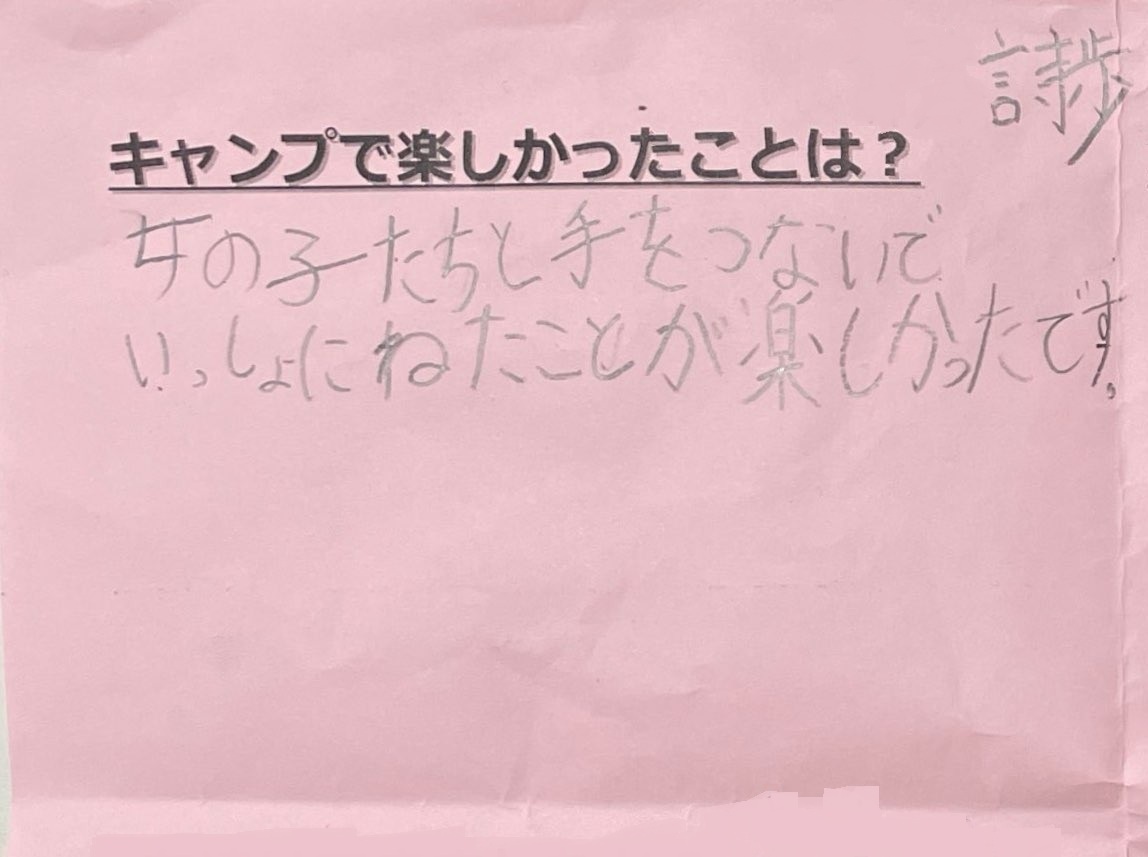 詩歩
キャンプで楽しかったことは？
女の子たちと手をつないで
いっしょにねたことが楽しかったです。